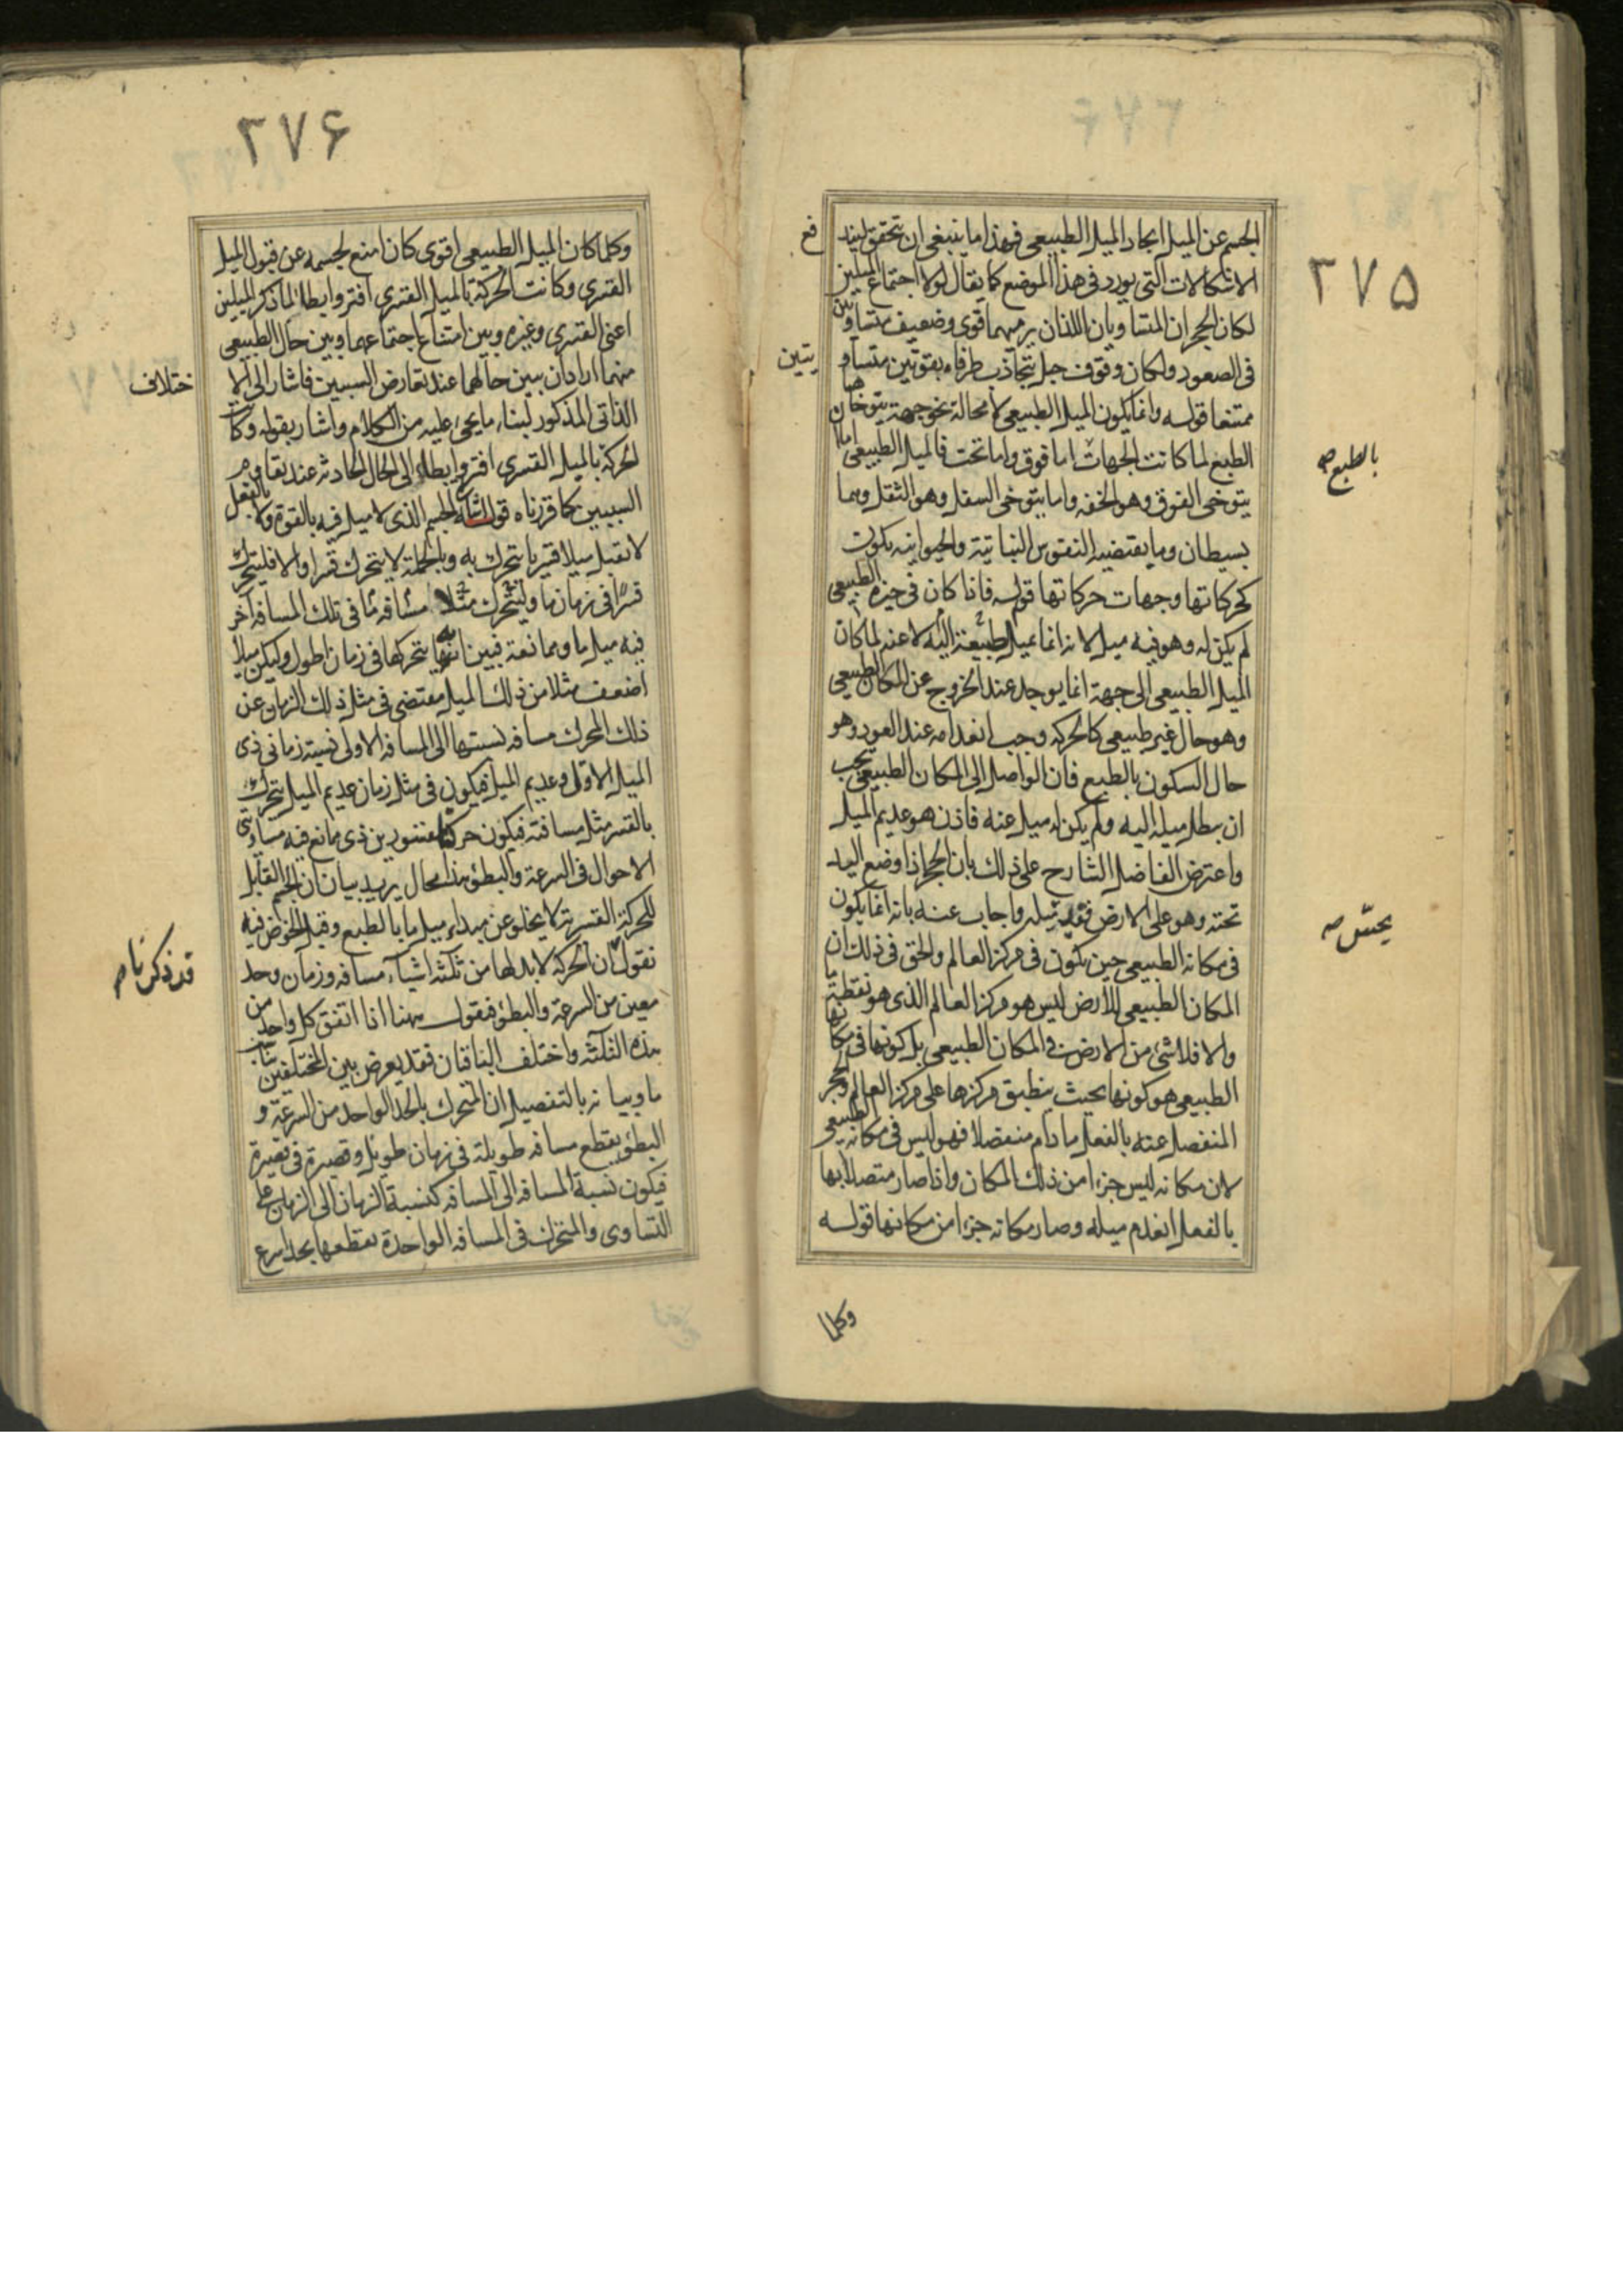 ٢٧٥
الجسم عن الميل ايجاد الميل الطبيعى فهذا ما ينبغى ان يتحقق ليند
فع
الاشكالات التى يورد فى هذا الموضع كما يقال لولا اجتماع الميلين
لكان الحجران المتساويان اللذان يرميهما قوى وضعيف متساويين
فى الصعود ولكان وقوف جبل يتجاذب طرفاه بقوتين متساو
يتين
ممتنعا قوله وانما يكون الميل الطبيعى لا محالة نحو جهة يتوخاها
الطبع لما كانت الجهات اما فوق واما تحت فالميل الطبيعى اما
بالطبع صح
يتوخى الفوق وهو الخفه واما يتوخى السفل وهو الثقل وهما
بسيطان وما يقتضيه النفوس النباتية والحيوانيه يكون
كحركاتها وجهات حركاتها قوله فاذا كان فى حيزه الطبيعى
لم يكن له وهو فيه ميل لانه انما يميل طبيعة اليه لا عنه لما كان
الميل الطبيعى الى جهة انما يوجد عند الخروج عن المكان الطبيعى
وهو حال غير طبيعى كالحركه وجب انعدامه عند العود وهو
حال السكون بالطبع فان الواصل الى المكان الطبيعى يجب
ان يبطل ميله اليه ولم يكن له ميل عنه فاذن هو عديم الميل
واعترض الفاضل الشارح على ذلك بان الحجر اذا وضع اليد
تحته وهو على الارض فقد ميله واجاب عنه بانه انما يكون
يحسّ صح
فى مكانه الطبيعى حين يكون فى مركز العالم والحق فى ذلك ان
المكان الطبيعى للارض ليس هو مركز العالم الذى هو نقطة ما
والا فلا شئ من الارض فى المكان الطبيعى بل كونها فى مكانها
الطبيعى هو كونها بحيث ينطبق مركزها على مركز العالم والحجر
المنفصل عنه بالفعل ما دام منفصلا فهو ليس فى مكانه الطبيعى
لان مكانه ليس جزءا من ذلك المكان واذا صار متصلا بها
بالفعل انعدم ميله وصار مكانه جزءا من مكانها قوله
وكلما
٢٧۶
وكلما كان الميل الطبيعى اقوى كان امنع لجسمه عن قبول الميل
القسرى وكانت الحركة بالميل القسرى افتر وابطا لما ذكر الميلين
اعنى القسرى وغيره وبين امتناع اجتماعهما وبين حال الطبيعى
منهما اراد ان يبين حالهما عند تعارض السببين فاشار الى الا
ختلاف
الذاتى المذكور لبناء ما يجئ عليه من الكلام واشار بقوله وكانت
الحركة بالميل القسرى افتر وابطاء الى الحال الحادثه عند تقاوم
السببين كما قررناه قوله اشارة الجسم الذى لا ميل فيه بالقوة ولا بالفعل
لا يقبل ميلا قسريا يتحرك به وبالجملة لا يتحرك قسرا والا فليتحرك
قسرًا فى زمان ما وليتحرك مثلا مسافه ما فى تلك المسافه آخر
فيه ميل ما وممانعة فبين انه يتحركها فى زمان اطول وليكن ميلا
اضعف مثلا من ذلك الميل مقتضى فى مثل ذلك الزمان عن
ذلك المحرك مسافه نسبتها الى المسافه الاولى نسبة زمانى ذى
الميل الاول وعديم الميل فيكون فى مثل زمان عديم الميل يتحرك
بالقسر مثل مسافته فيكون حركتا مقسورين ذى مانع فيه متساوى
الاحوال فى السرعة والبطؤ هذا محال يريد بيان ان الجسم القابل
للحركة القسرية لا يخلو عن مبداء ميل ما بالطبع وقبل الخوض فيه
نقول ان الحركة لا بد لها من ثلثه اشياء مسافه وزمان وحد
قد ذكرنا صح
معين من السرعة والبطؤ فنقول ههنا اذا اتفق كل واحد من
هذه الثلثه واختلف الباقيان فقد يعرض بين المختلفين
ما وبيانه بالتفصيل ان المتحرك بالحد الواحد من السرعة و
البطؤ يقطع مسافه طويلة فى زمان طويل وقصيرة فى قصيرة
فيكون نسبة المسافه الى المسافه كنسبة الزمان الى الزمان على
التساوى والمتحرك فى المسافه الواحدة يقطعها بحد اسرع